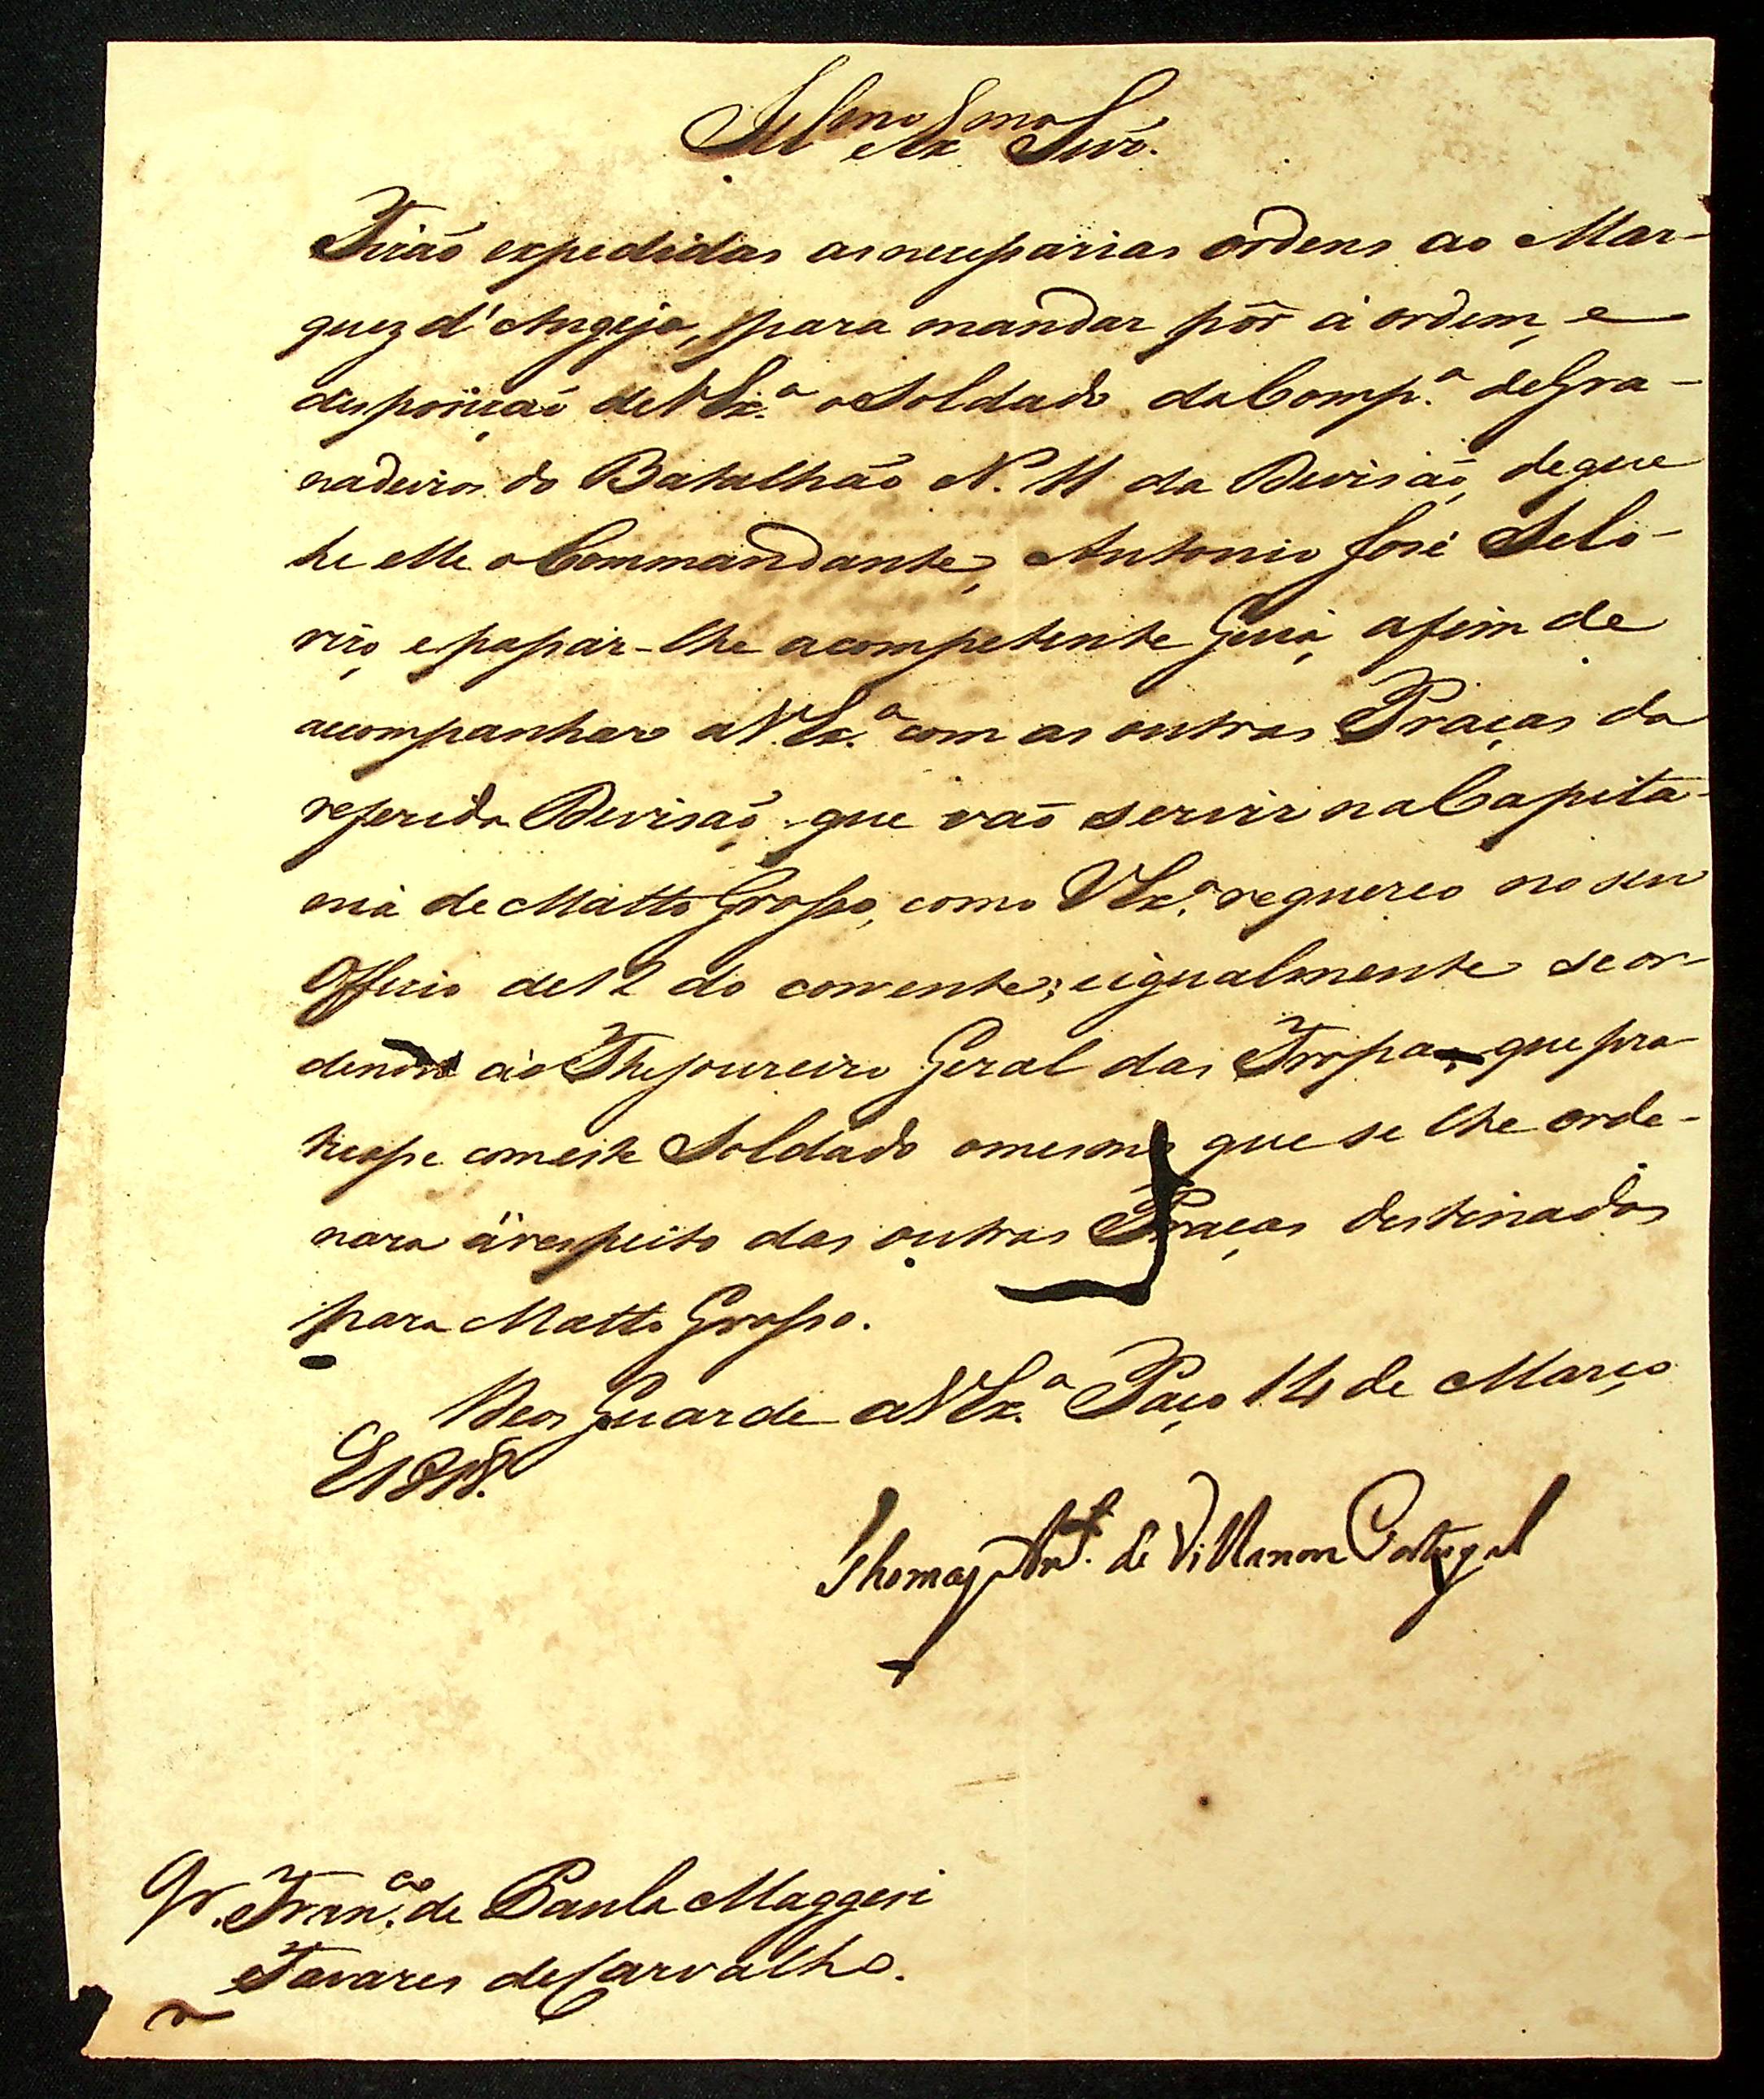 Ill.mo Ex.mo Snr.
Firão expedidas as necessarias ordens ao Mar-
quez d'Angeja, para mandar pôr à ordem, e
disposição de V Ex.ª o Soldado da Comp.ª de Gra-
nadeiros do Batalhão N. 11 da Divisão, de que
he elle o Commandante, Antonio José Selo-
rio, e passar-lhe a competente Guia, afim de
acompanhar a V Ex.ª com as outras Praças da
referida Divisão, que vão servir na Capita-
nia de Matto Grosso, como V Ex.ª requereo no seu
Officio de 12 do corrente; e igualmente se or-
denou ao Thesoureiro Geral das Tropas, que pra-
ticasse com este Soldado o mesmo que se lhe orde-
nara á respeito das outras Praças destinadas
para Matto Grosso.
Deos Guarde a V Ex.ª Paço 14 de Março
1818.
Thomaz Ant. de Villanova Portugal
Sr. Fran.co de Paula Maggesi
Tavares de Carvalho.